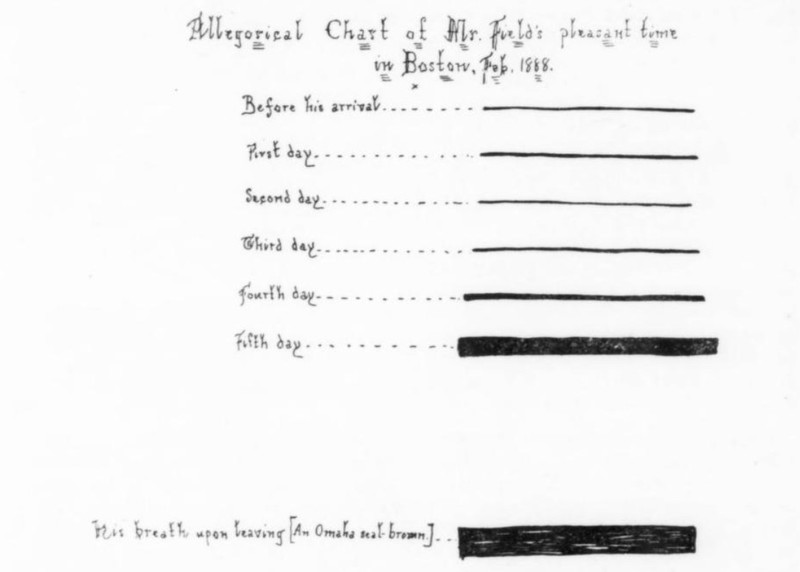 Allegorical Chart of Mr. Field's pleasant time
in Boston, Feb. 1888.
Before his arrival
First day
Second day
Third day
Fourth day
Fifth day
His breath upon leaving [An Omaha seal-brown.]